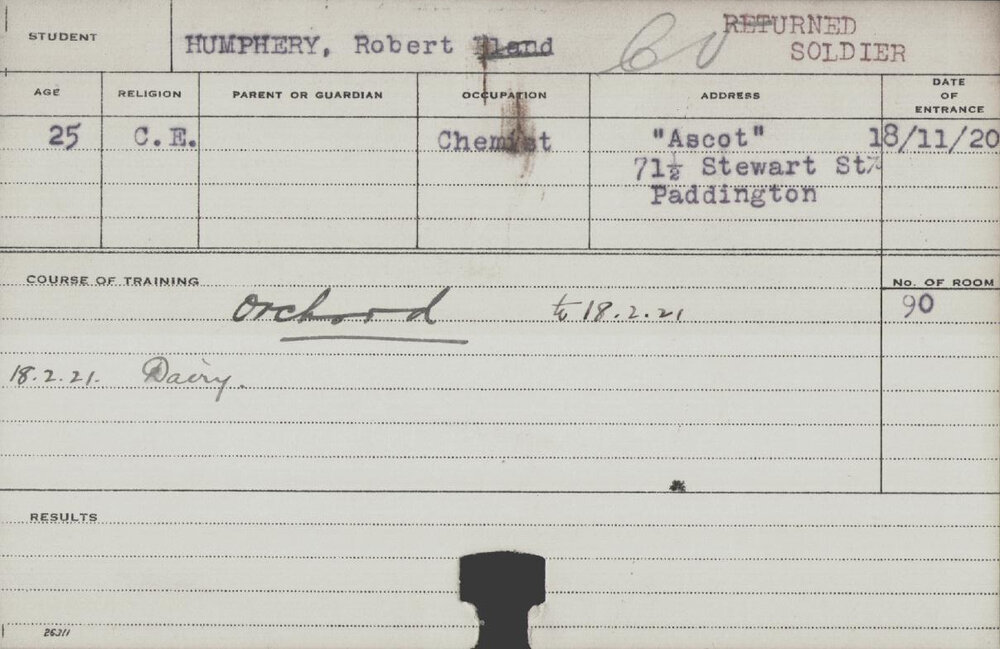 RETURNED
STUDENT HUMPHERY, Robert Bland SOLDIER
AGE RELIGION PARENT OR GUARDIAN OCCUPATION ADDRESS DATE OF ENTRANCE
25 C.E. Chemist "Ascot" 18/11/20
71½ Stewart St
Paddington
COURSE OF TRAINING No. OF ROOM
Orchard to 18.2.21 90
18.2.21. Dairy.
RESULTS
26311